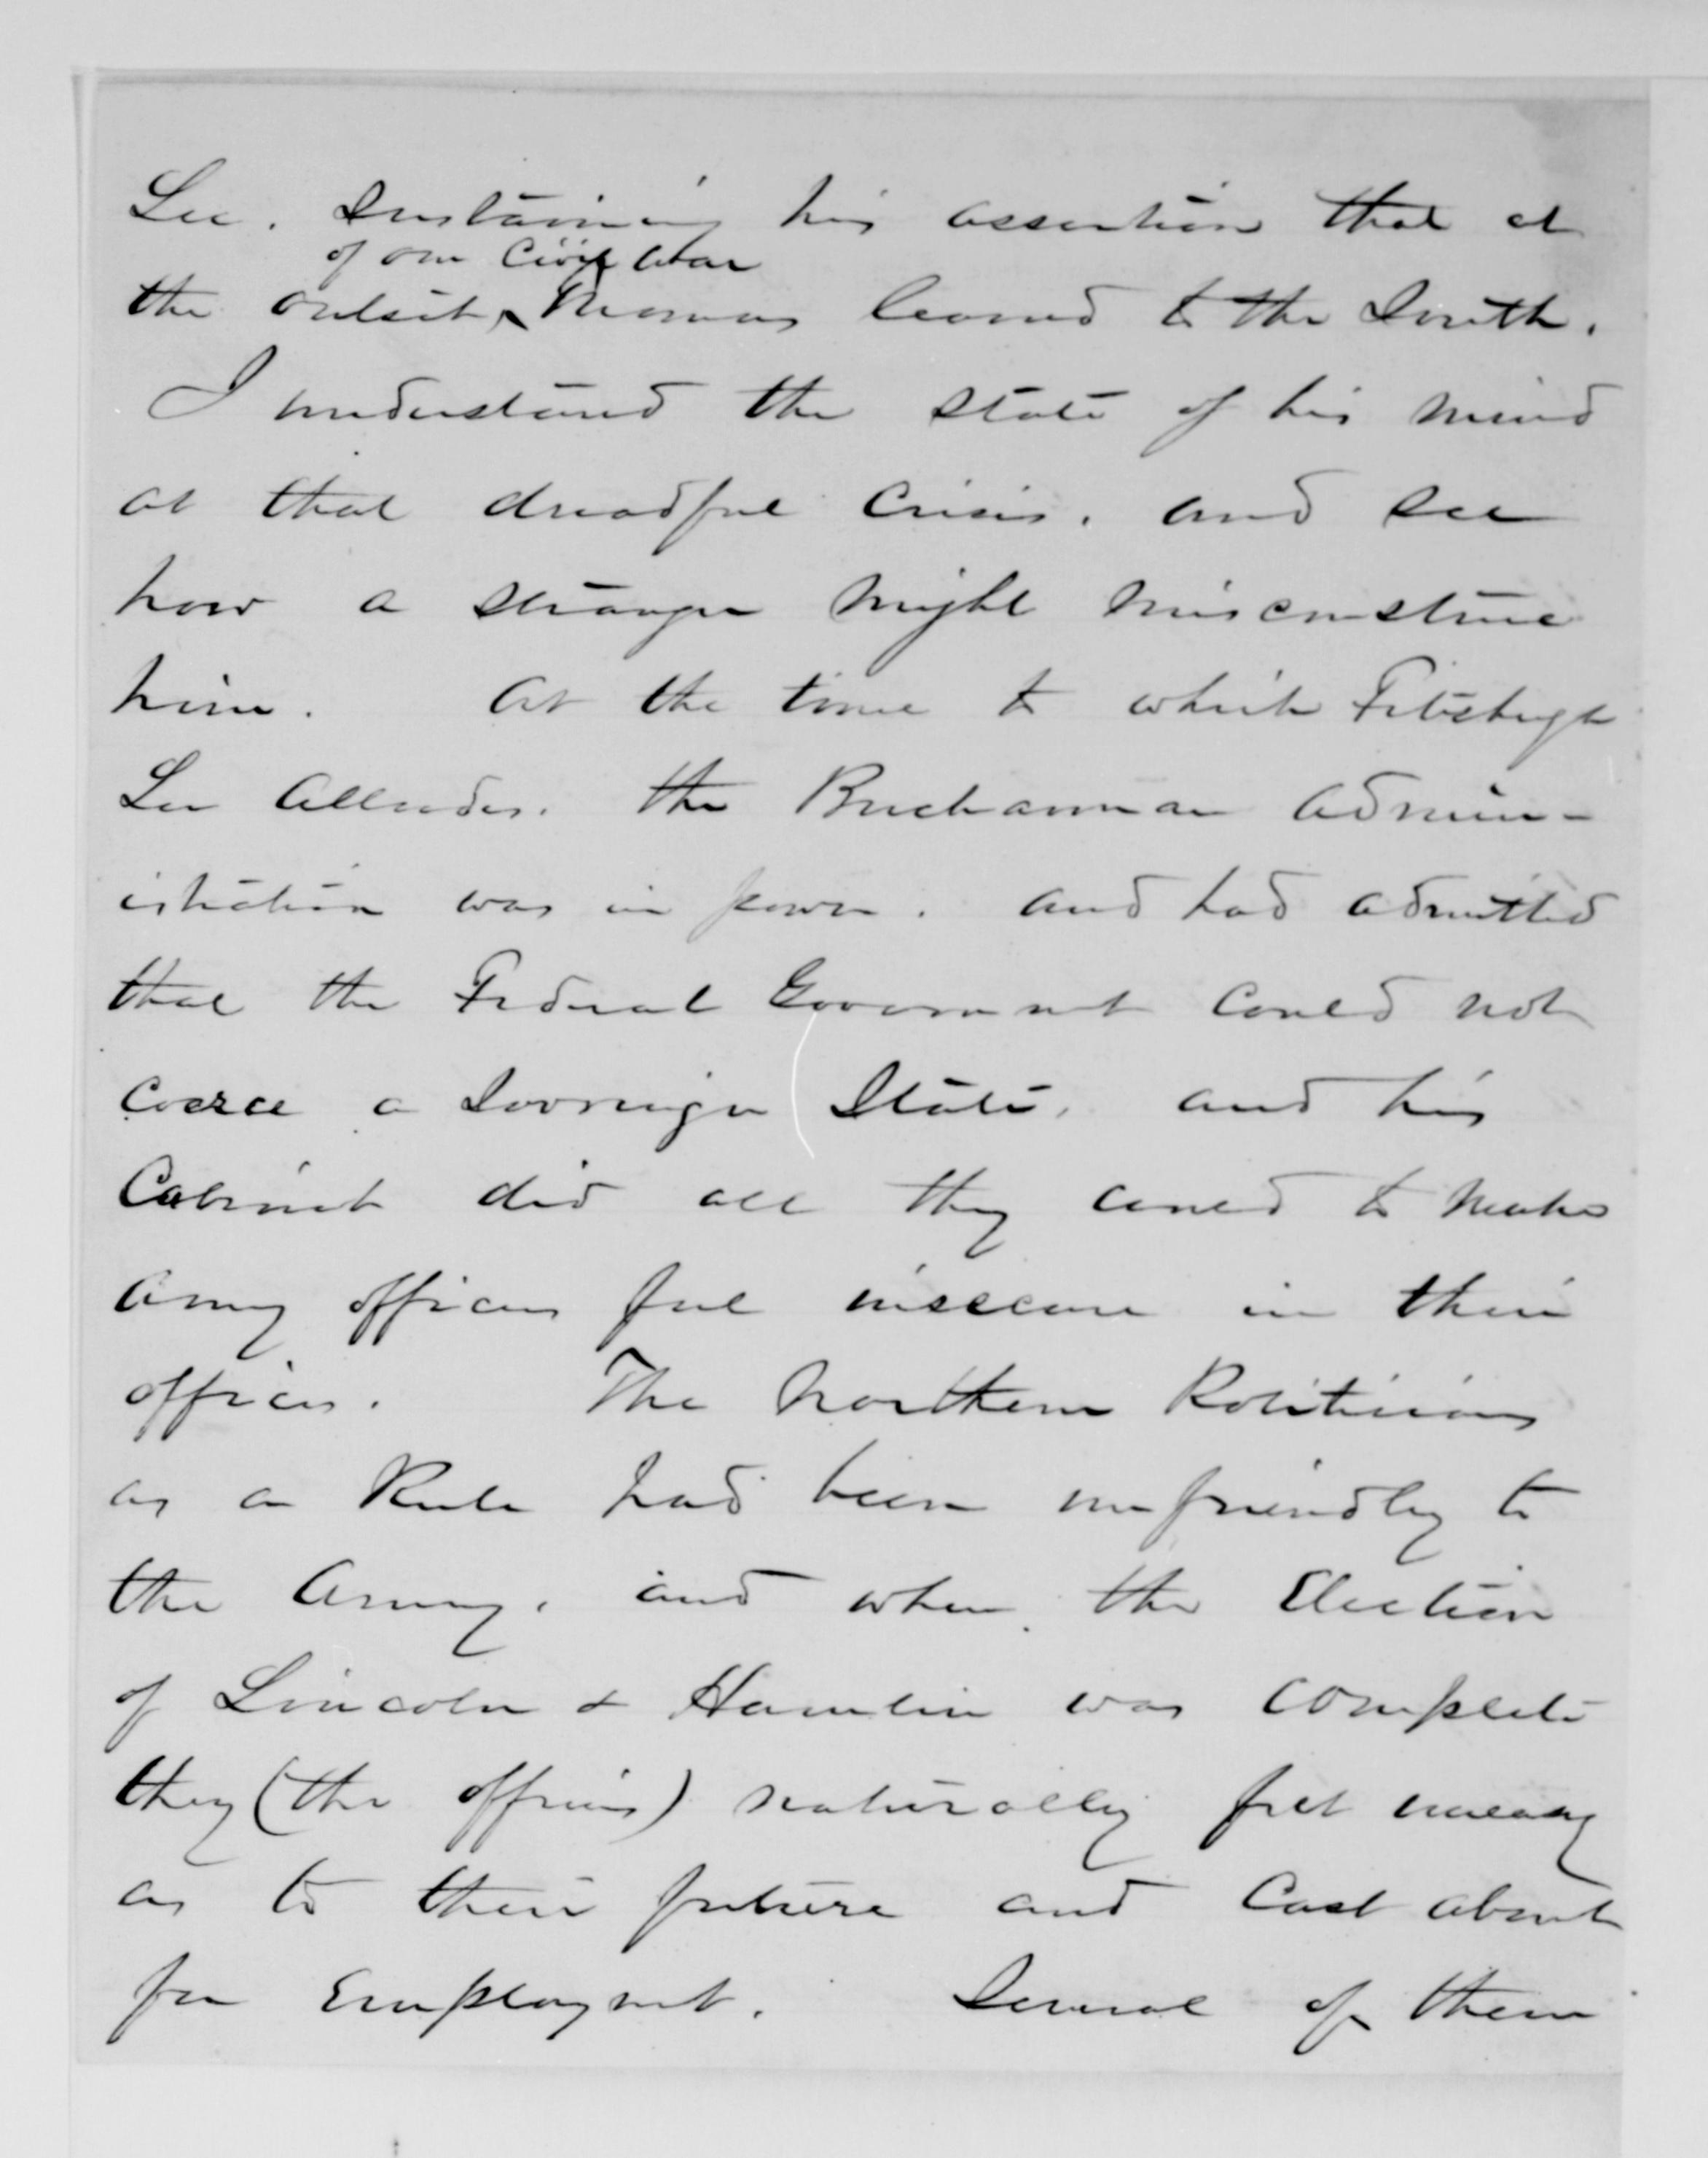 Lee. Sustaining his assertion that at
of our Civil War
the outset, Thomas leaned to the South.
I understand the state of his mind
at that dreadful Crisis. and see
how a stranger might misconstrue
him. At the time to which Fitzhugh
Lee Alludes. the Buchannan Admin-
istration was in power. and had admitted
that the Federal Government could not
Coerce a Sovreign State. and his
Cabinet did all they could to make
Army officers feel insecure in their
offices. The Northern Politicians
as a Rule had been unfriendly to
the Army. and when the Election
of Lincoln & Hamlin was complete
they (the officers) naturally felt uneasy
as to their future and Cast about
for Employmt. Several of them